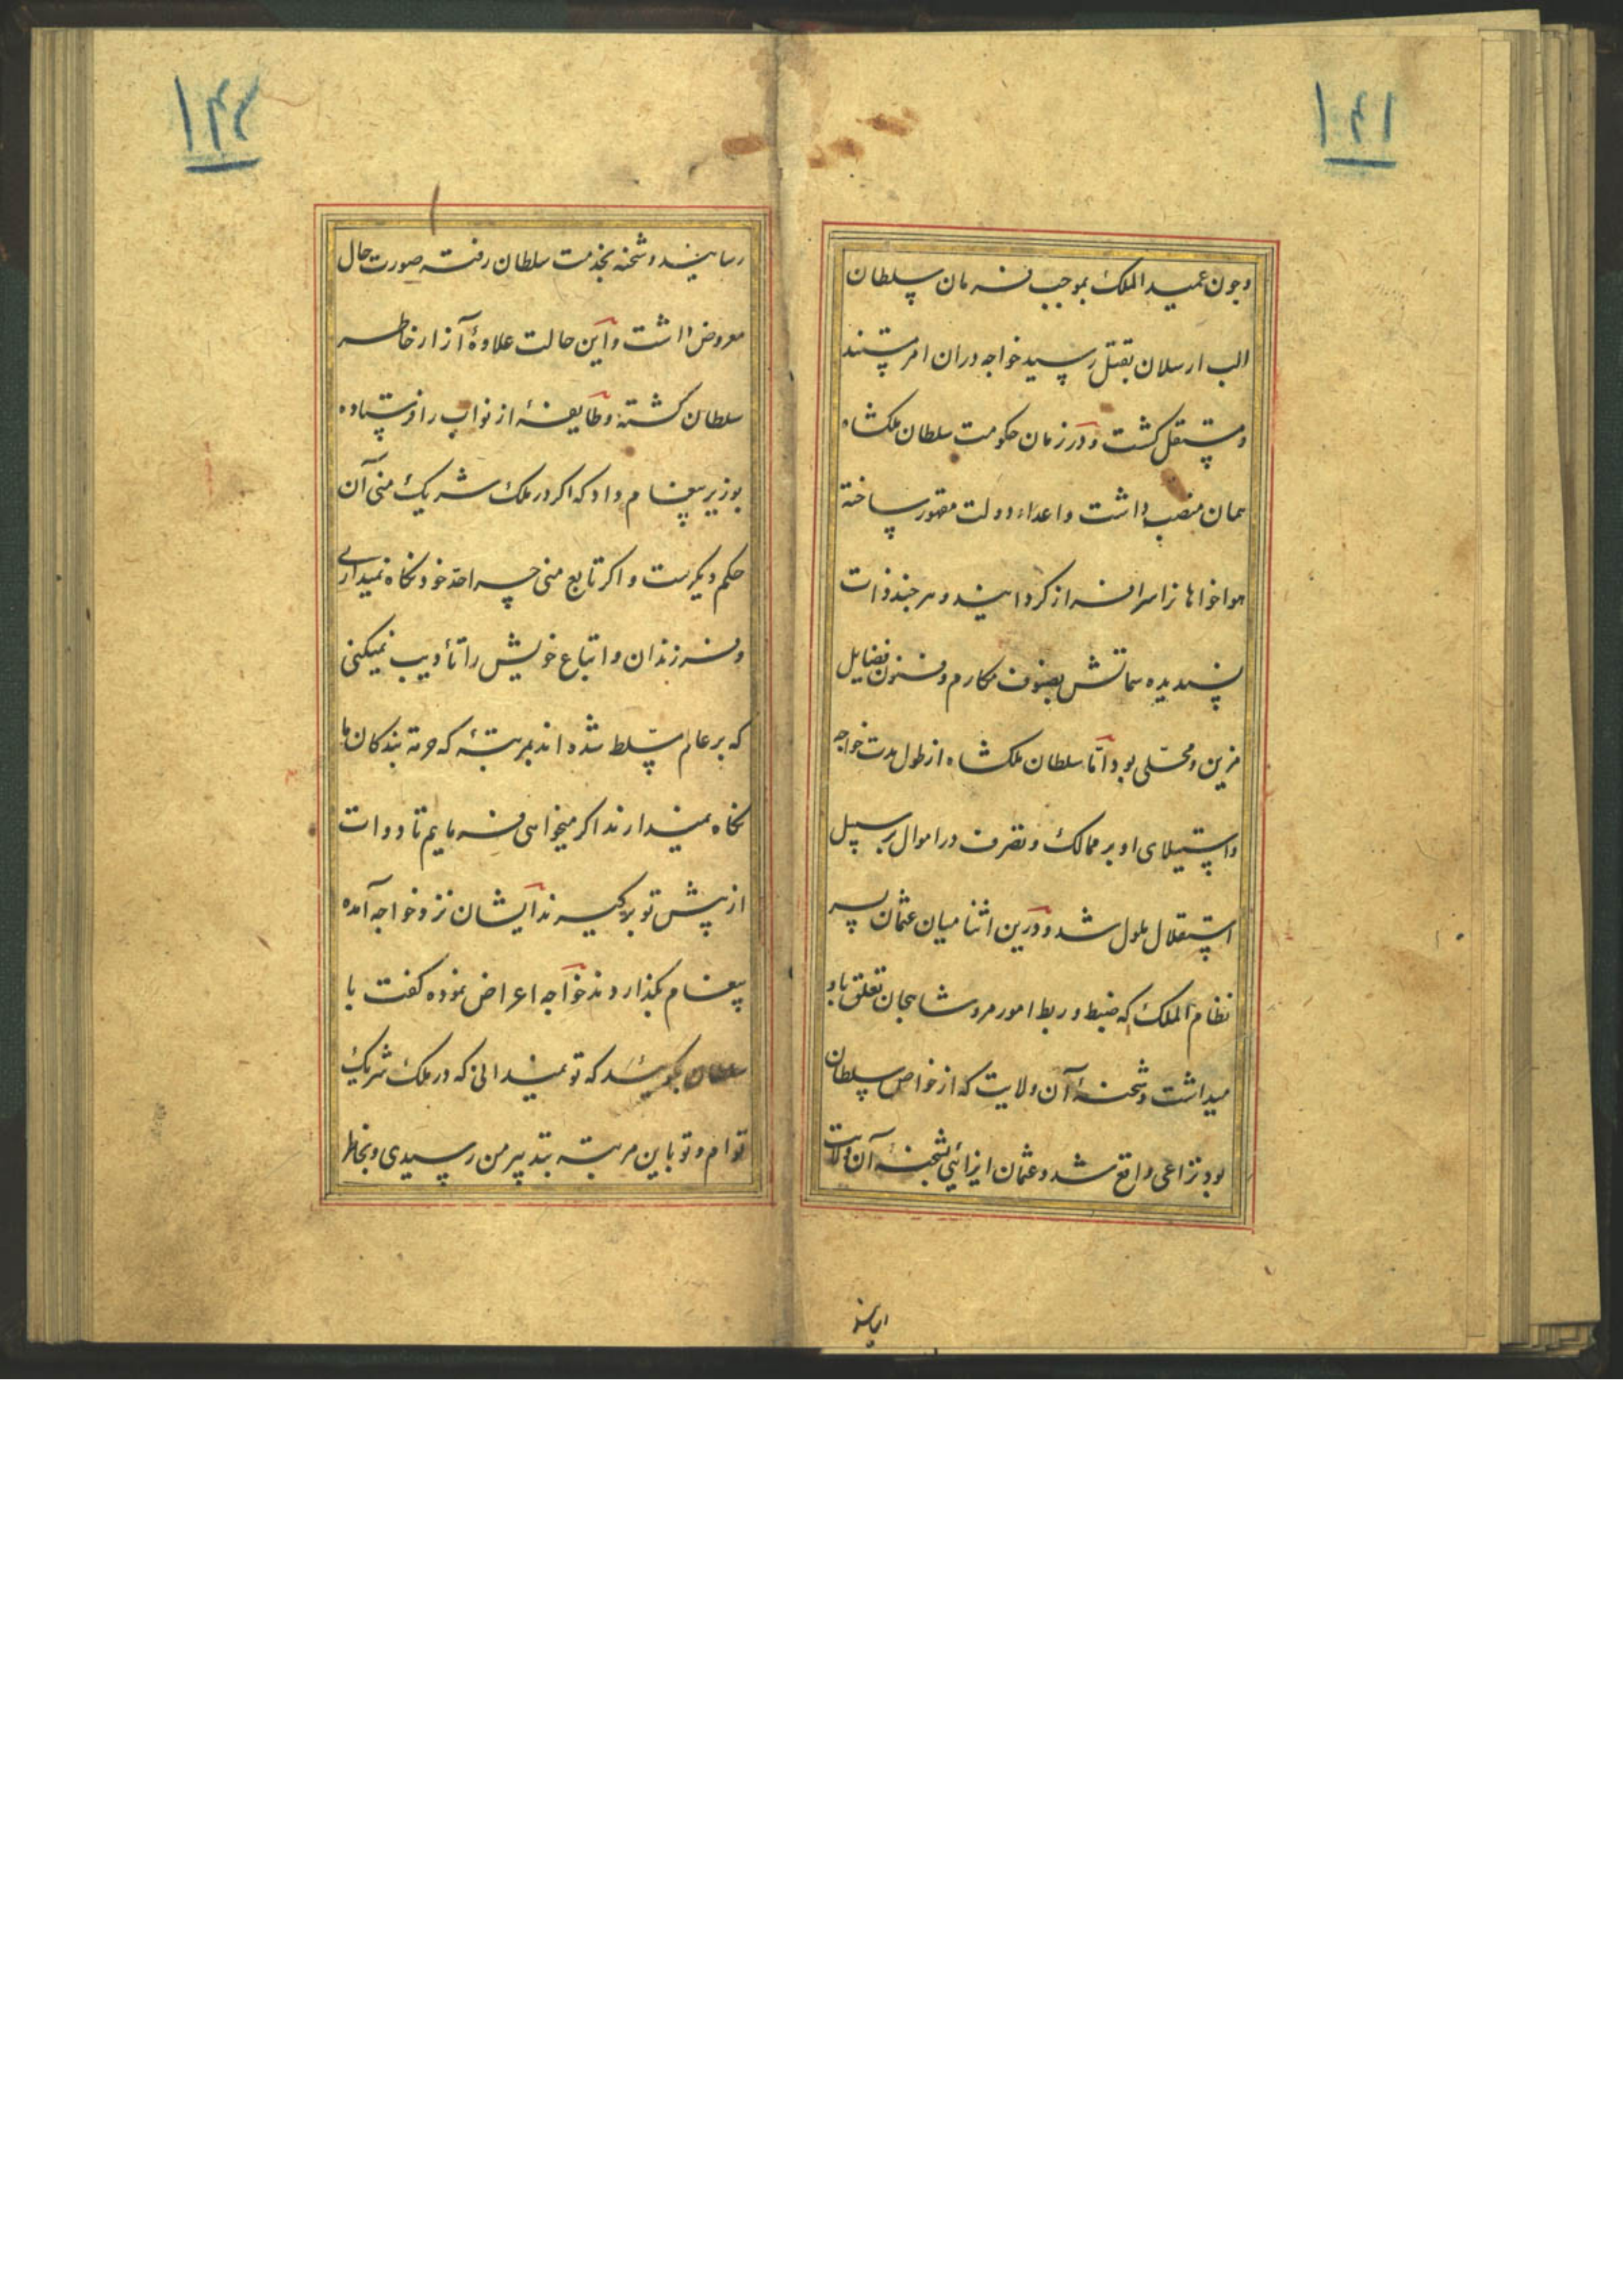 ۱۴۱
وچون عمید الملک بموجب فرمان سلطان
الب ارسلان بقتل رسید خواجه دران امر مستبد
و مستقل کشت و در زمان حکومت سلطان ملکشاه
همان منصب داشت و اعداء دولت مقهور ساخته
هواخواهانرا سرافراز کردانید و هر چند ذات
پسندیده سماتش بصنوف مکارم و فنون فضایل
مزین و محلی بود اما سلطان ملکشاه از طول مدت خواجه
و استیلای او بر ممالک و تصرف در اموال بر سبیل
استقلال ملول شد و درین اثنا میان عثمان پسر
نظام الملک که ضبط و ربط امور مرو شاهجان تعلق باو
میداشت و شحنهٔ آن ولایت که از خواص سلطان
بود نزاعی واقع شد و عثمان ایذائی بشحنهٔ آن ولایت
۱۴۲
رسانید و شحنه بخدمت سلطان رفته صورت حال
معروض داشت و این حالت علاوهٔ آزار خاطر
سلطان کشته و طایفهٔ از نواب را فرستاده
بوزیر پیغام داد که اکر در ملک شریک منی آن
حکم دیکرست و اکر تابع منی چرا حد خود نکاه نمیداری
و فرزندان و اتباع خویش را تأدیب نمیکنی
که بر عالم مسلط شده اند بمرتبهٔ که حرمة بندکان ما
نکاه نمیدارند اکر میخواهی فرمایم تا دوات
از پیش تو برکیرند ایشان نزد خواجه آمده
پیغام بکذاردند خواجه اعراض نموده کفت با
سلطان بکوئید که تو نمیدانی که در ملک شریک
توام و تو باین مرتبه بتدبیر من رسیدی و بخاطر